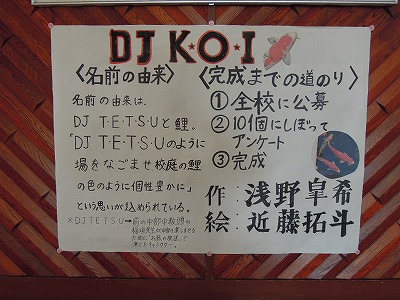 DJ K・O・I
〈名前の由来〉
名前の由来は、
DJ T・E・T・S・Uと鯉。
「DJ T・E・T・S・Uのように
場をなごませ校庭の鯉
の色のように個性豊かに」
という思いが込められている。
※DJ TETSU→前の中部中教頭の
稲垣先生が中部を楽しませる
ために「お昼の放送」で
演じたキャラクター。
〈完成までの道のり〉
①全校に公募
②10個にしぼって
アンケート
③完成
作:浅野皐希
絵:近藤拓斗